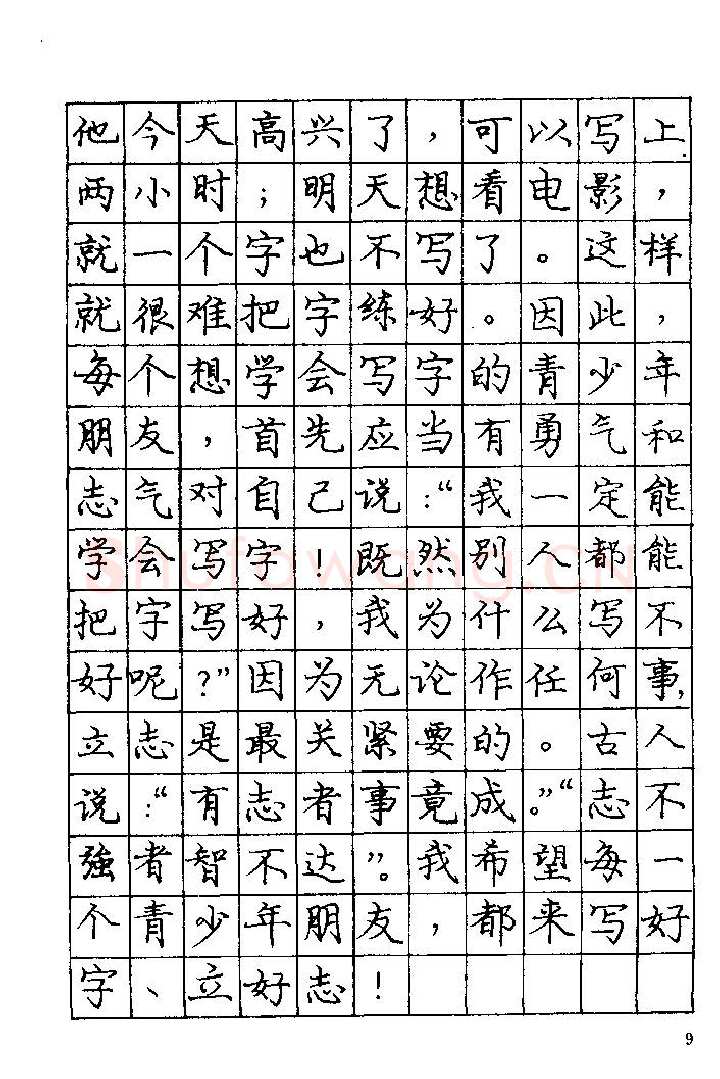 他今天高兴了，可以写上
两小时；明天想看电影，
就一个字也不写了。这样
就很难把字练好。因此，
每个想学会写字的青少年
朋友，首先应当有勇气和
志气对自己说：“我一定能
学会写字！既然别人都能
把字写好，我为什么写不
好呢？”因为无论作任何事，
立志是最关紧要的。古人
说：“有志者事竟成。”“志不
強者智不达”。我希望每一
个青少年朋友，都来写好
字、立好志！
9
Shufawang.CN